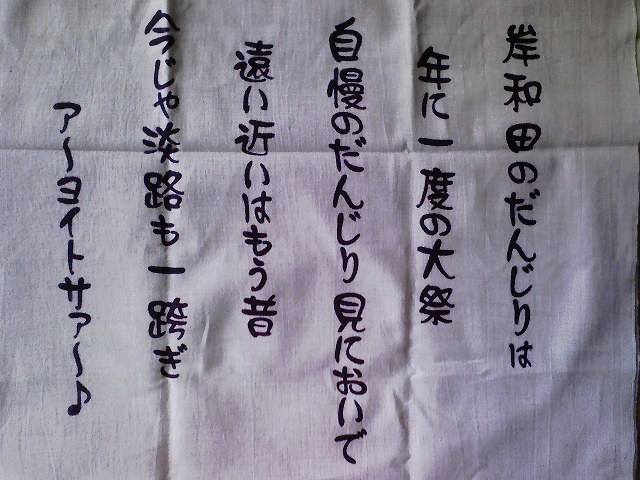 岸和田のだんじりは
年に一度の大祭
自慢のだんじり見においで
遠い近いはもう昔
今じゃ淡路も一跨ぎ
ア〜ヨイトサァ〜♪